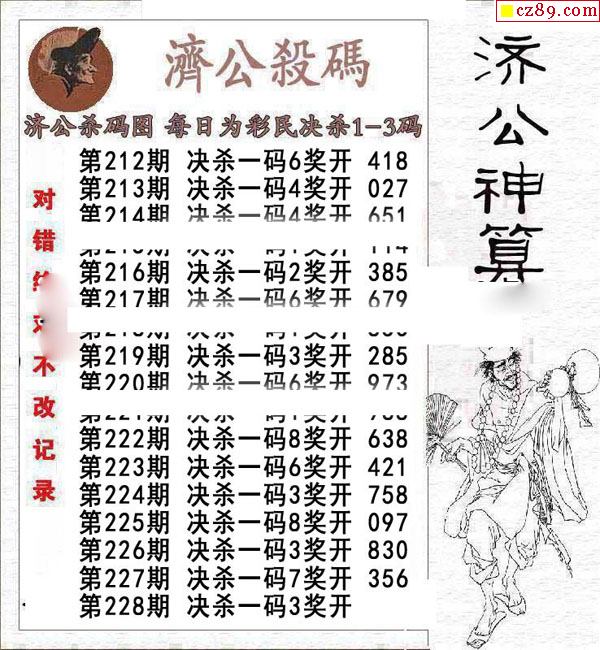 cz89.com
濟公殺碼
济公杀码图 每日为彩民决杀1-3码
第212期 决杀一码6奖开 418
第213期 决杀一码4奖开 027
第214期 决杀一码4奖开 651
第216期 决杀一码2奖开 385
第217期 决杀一码6奖开 679
第219期 决杀一码3奖开 285
第220期 决杀一码6奖开 973
第222期 决杀一码8奖开 638
第223期 决杀一码6奖开 421
第224期 决杀一码3奖开 758
第225期 决杀一码8奖开 097
第226期 决杀一码3奖开 830
第227期 决杀一码7奖开 356
第228期 决杀一码3奖开
对错
不改记录
济公神算